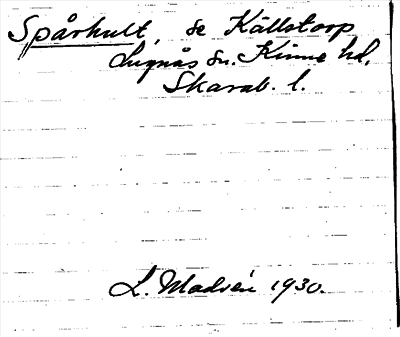 Spårhult, se Källstorp
Lugnås sn. Kinne hd.
Skarab. l.
L. Modvén 1930.